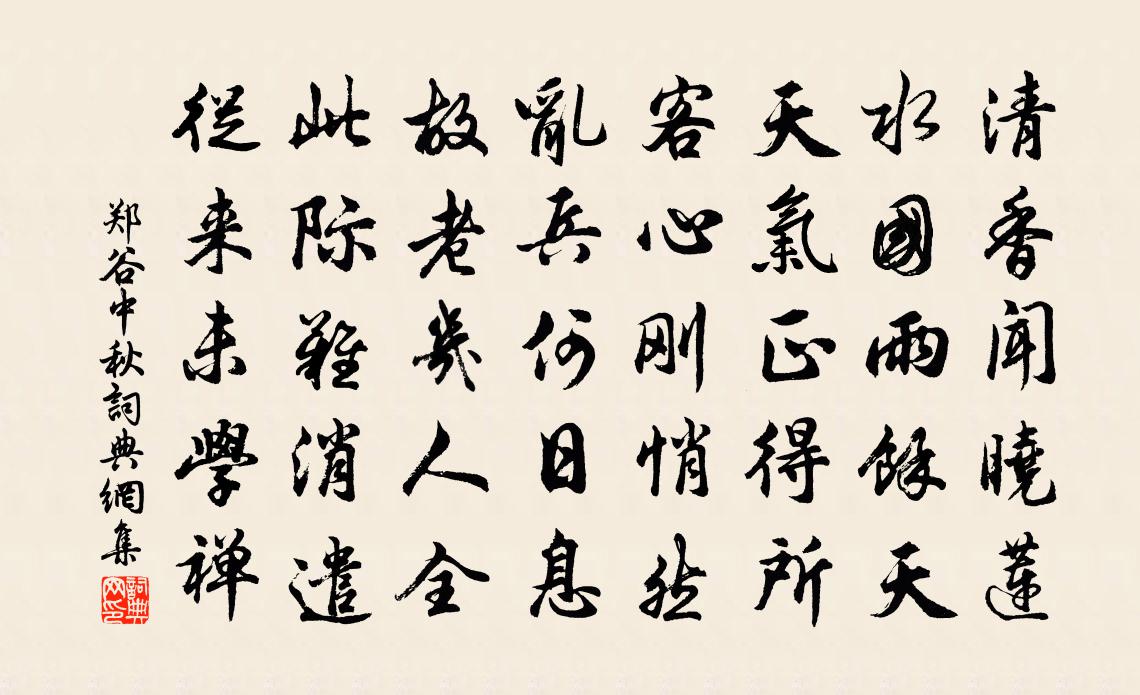 清香聞曉蓮
水國雨餘天
天氣正得所
客心刚悄然
亂兵何日息
故老幾人全
此际難消遣
從来未學禅
郑谷中秋詞典網集
詞典網印